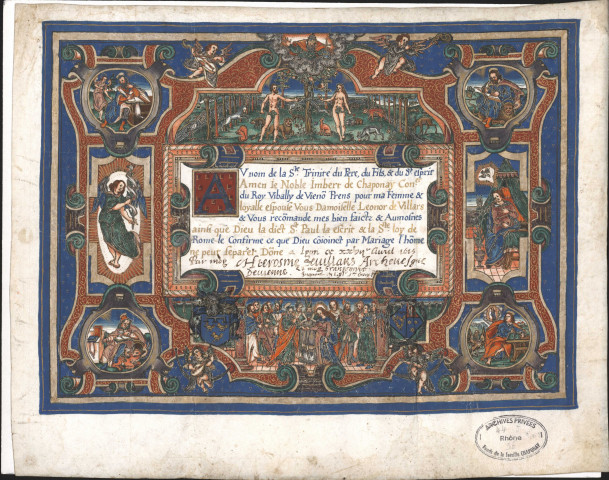 AV nom de la Ste Trinité du Pere, du Fils, & du St esprit
Amen Ie Noble Imbert de Chaponay Coner
du Roy Vibally de Vienō Prens pour ma Femme &
loyalle espouse Vous Damoiselle Leonor de Villars
& Vous recōmande mes bien faicts & Aumosnes
ainsi que Dieu la dict St Paul la escrit & la Ste loy de
Rome le Confirme ce que Dieu cōioinct par Mariage l'hōme
ne peut separer Dōné a lyon ce avril
Par moy Hierosme de villars Archevesque
de vienne
ARCHIVES PRIVÉES
Rhône
Fonds de la famille CHAPONAY